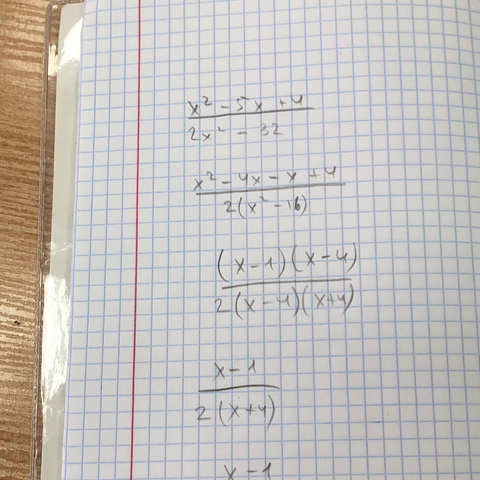 x² - 5x + 4
2x² - 32
x² - 4x - x + 4
2(x² - 16)
(x-1)(x-4)
2(x-4)(x+4)
x-1
2(x+4)
x-1